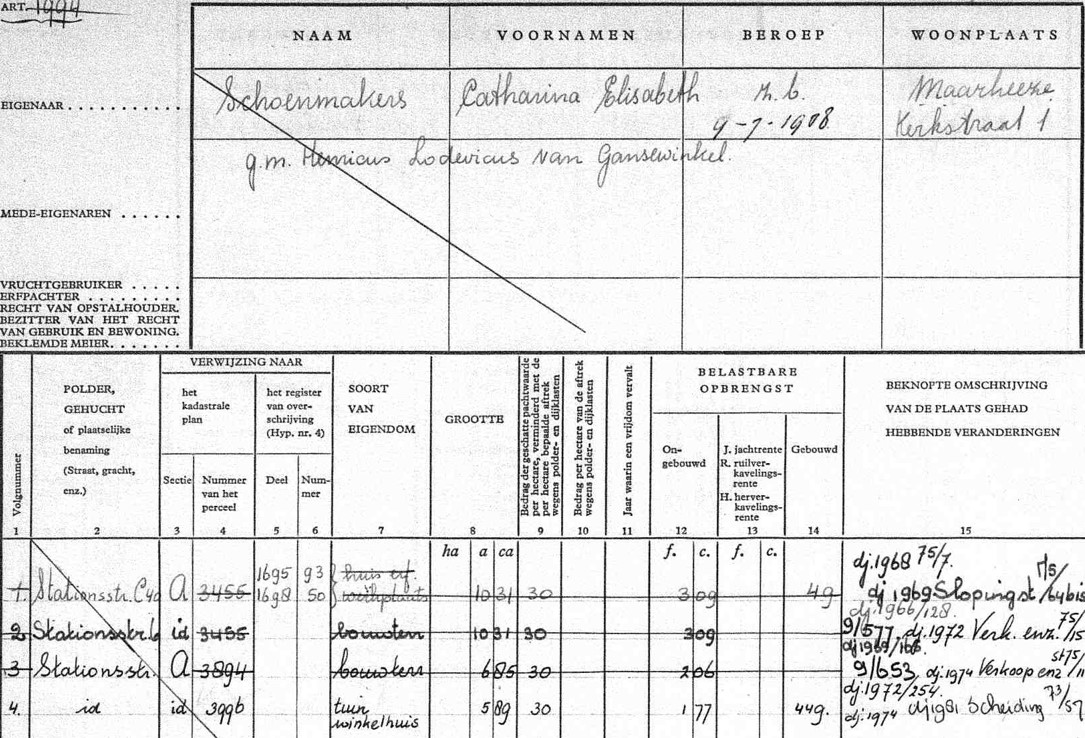 ART. 1994
NAAM VOORNAMEN BEROEP WOONPLAATS
EIGENAAR . . . . . . . . . . Schoenmakers Catharina Elisabeth z.b. Maarheeze
9-7-1908 Kerkstraat 1
g.m. Henricus Lodevicus van Gansewinkel.
MEDE-EIGENAREN . . . . . .
VRUCHTGEBRUIKER . . . . .
ERFPACHTER . . . . . . . . .
RECHT VAN OPSTALHOUDER.
BEZITTER VAN HET RECHT
VAN GEBRUIK EN BEWONING.
BEKLEMDE MEIER. . . . . . .
Volgnummer
1
POLDER,
GEHUCHT
of plaatselijke
benaming
(Straat, gracht,
enz.)
2
VERWIJZING NAAR
het
kadastrale
plan
Sectie
3
Nummer
van het
perceel
4
het register
van over-
schrijving
(Hyp. nr. 4)
Deel
5
Num-
mer
6
SOORT
VAN
EIGENDOM
7
GROOTTE
8
Bedrag der geschatte pachtwaarde
per hectare, verminderd met de
per hectare bepaalde aftrek
wegens polder- en dijklasten
9
Bedrag per hectare van de aftrek
wegens polder- en dijklasten
10
Jaar waarin een vrijdom vervalt
11
BELASTBARE
OPBRENGST
On-
gebouwd
12
J. jachtrente
R. ruilver-
kavelings-
rente
H. herver-
kavelings-
rente
13
Gebouwd
14
BEKNOPTE OMSCHRIJVING
VAN DE PLAATS GEHAD
HEBBENDE VERANDERINGEN
15
ha a ca f. c. f. c.
dj.1968 75/7.
1695 93 huis erf.
1. Stationsstr. A 3455 1698 50 10 31 30 3 09 49 dj 1969 Sloping st 75/64bis
dj 1966/128.
2 Stationsstr. id 3455 bouwterr 10 31 30 3 09 9/577, dj.1972 Verk. enz. 75/15
3 Stationsstr. A 3894 bouwterr 6 85 30 2 06 9/653, dj.1974 Verkoop enz st 75/11
dj.1972/254.
4. id id 3996 tuin 5 89 30 1 77 449. dj1981 Scheiding 73/57
winkelhuis dj.1974